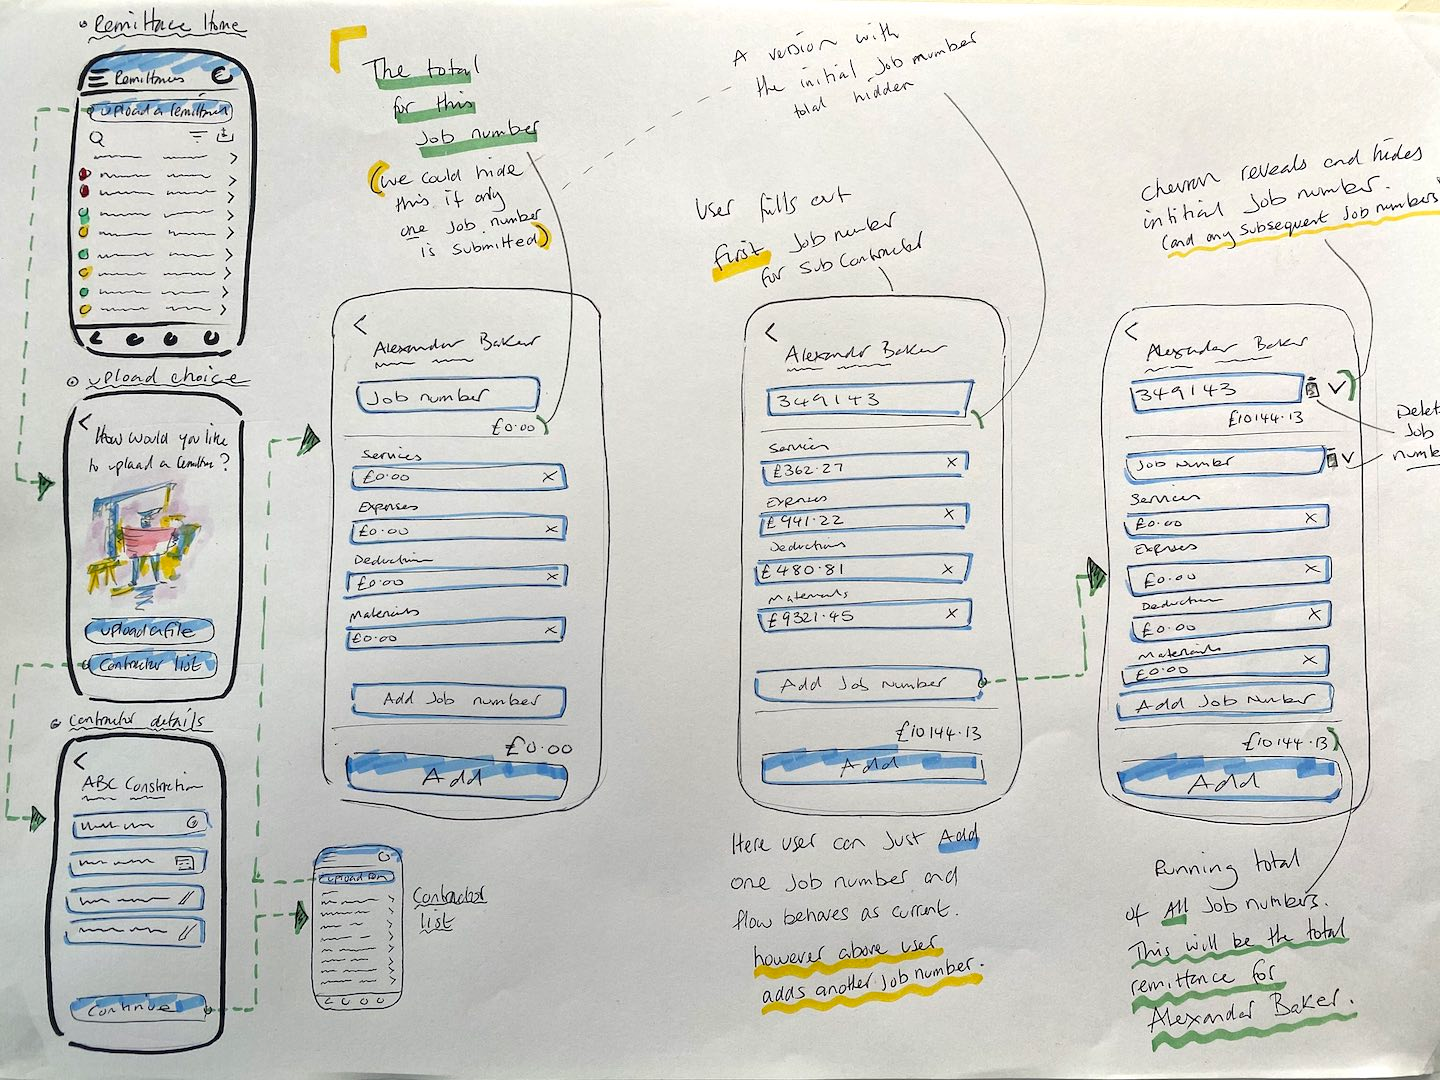 Remittace Home
Remittances
upload a remittance
upload choice
How would you like
to upload a remittance?
upload a file
Contractor list
Contractor details
ABC Construction
Continue
The total
for this
Job number
(we could hide
this if only
one Job number
is submitted)
Alexander Baker
Job number
£0.00
Services
£0.00 X
Expenses
£0.00 X
Deductions
£0.00 X
Materials
£0.00 X
Add Job number
£0.00
Add
upload rem
Contractor
list
A version with
the initial Job number
total hidden
User fills out
first Job number
for Sub Contractor
Alexander Baker
349143
Services
£362.27 X
Expenses
£941.22 X
Deductions
£480.81 X
Materials
£9321.45 X
Add Job Number
£10144.13
Add
Here user can just Add
one Job number and
flow behaves as current.
however above user
adds another Job number.
Chevron reveals and hides
intitial Job number.
(and any subsequent Job numbers)
Alexander Baker
349143
£10144.13
Delete
Job
number
Job number
Services
£0.00 X
Expenses
£0.00 X
Deduction
£0.00 X
Materials
£0.00 X
Add Job Number
£10144.13
Add
Running total
of All Job numbers.
This will be the total
remittance for
Alexander Baker.